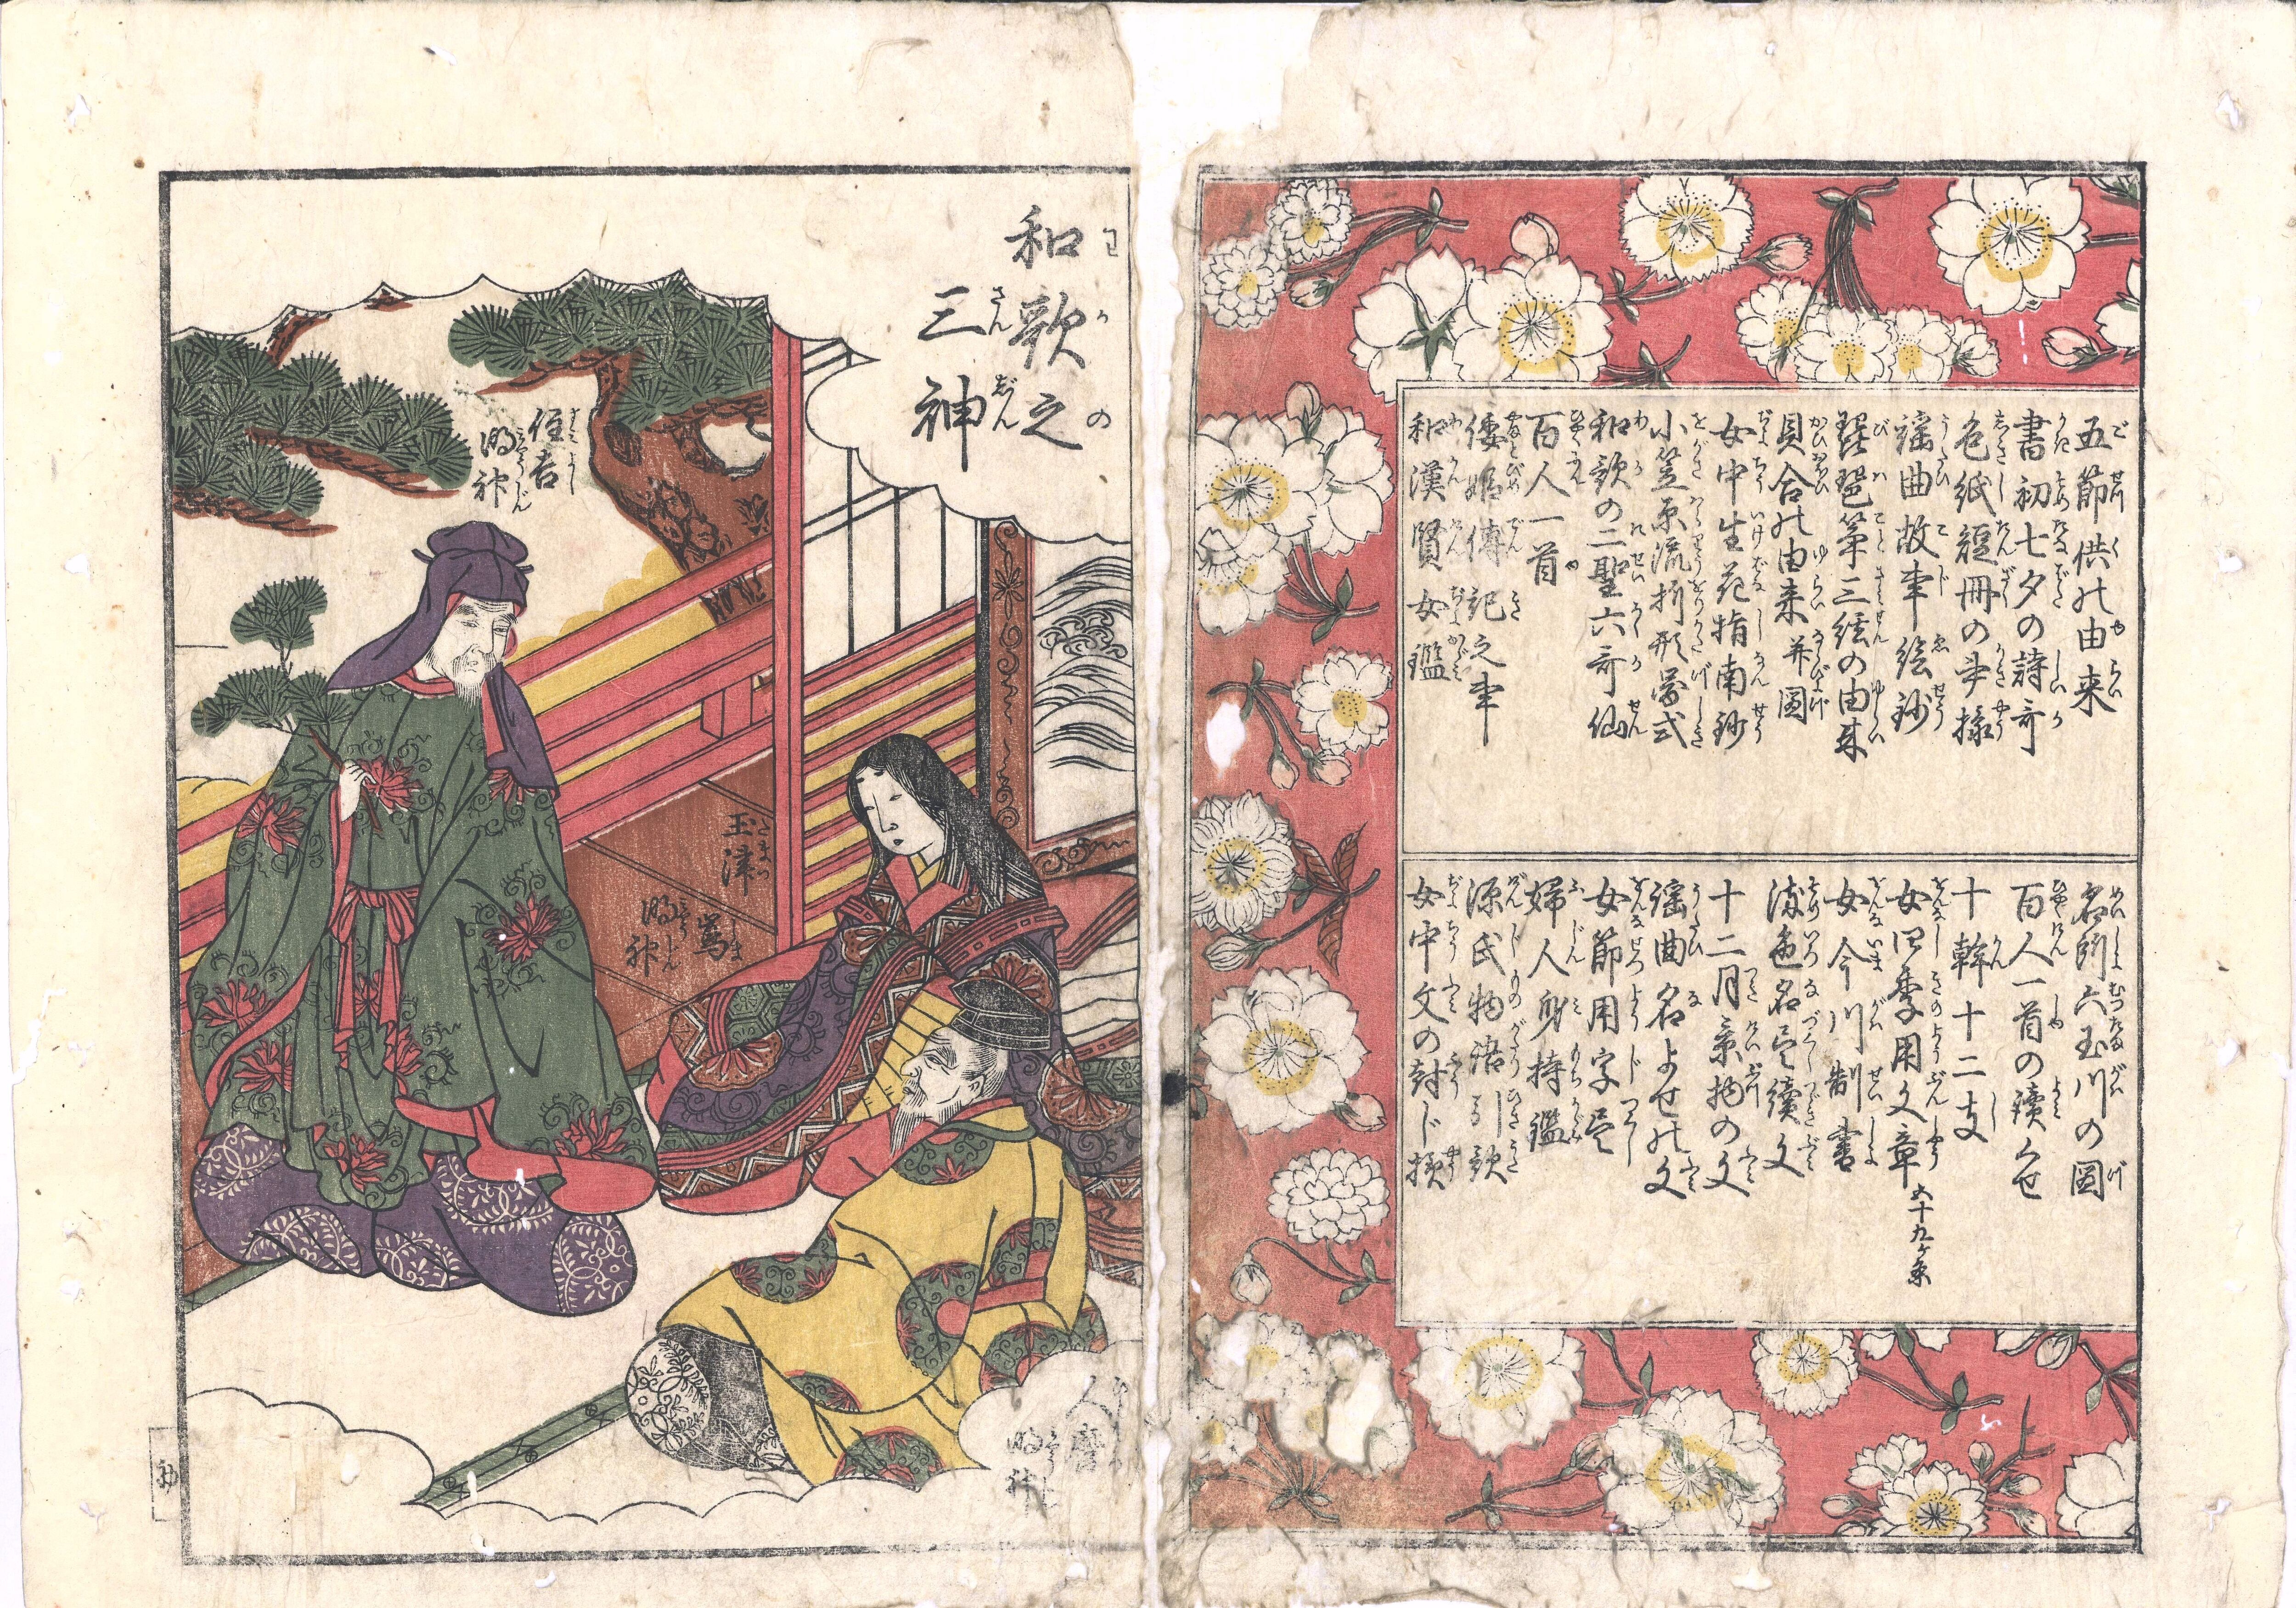 五節供の由来
書初七夕の詩哥
色紙短冊の書様
謡曲故事絵抄
琵琶箏三絃の由来
貝合の由来并図
女中生花指南抄
小笠原流折形図式
和歌の二聖六哥仙
百人一首
倭姫傳記之事
和漢賢女鑑
名所六玉川の図
百人一首の読くせ
十幹十二支
女四季用文章 五十九ケ条
女今川制書
染色名尽續文
十二月景物の文
謡曲名よせの文
女節用字尽
婦人身持鑑
源氏物語引歌
女中文の封じ様
和歌之
三神
住吉
明神
玉津
嶌
明神
人麿
明神